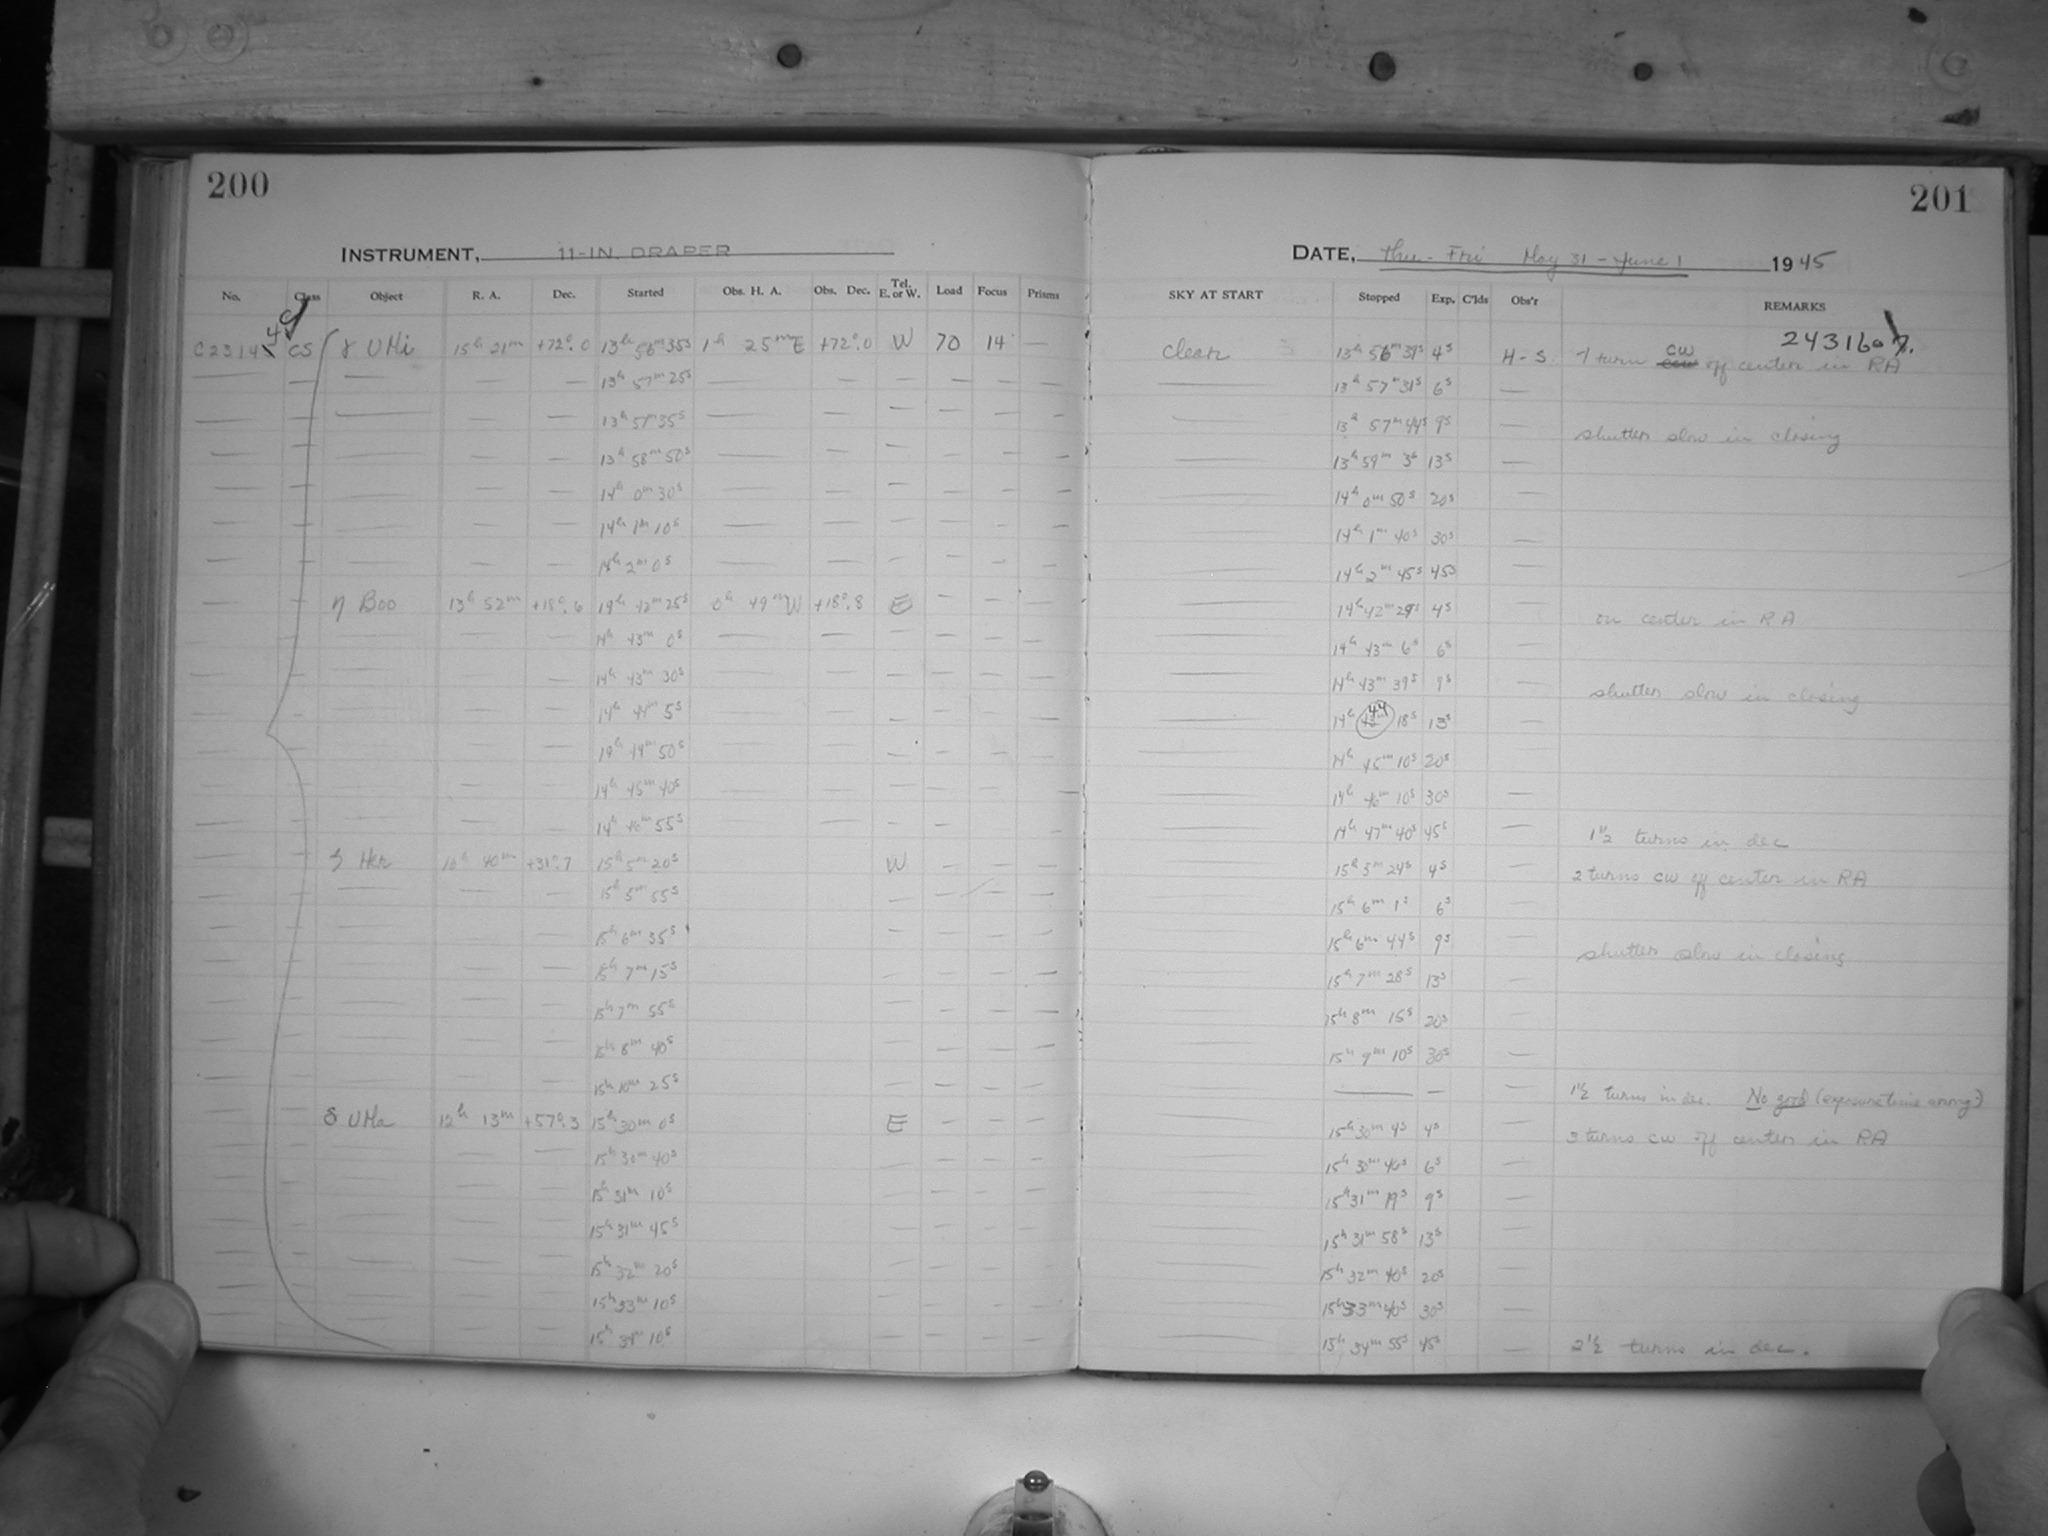 200
INSTRUMENT, 11-IN. DRAPER
No. Class Object R. A. Dec. Started Obs. H. A. Obs. Dec. Tel. E. or W. Load Focus Prisms
CS γ UMi 15h 21m +72°.0 13h 56m 35s 1h 25m E +72°.0 W 70 14 —
13h 57m 25s
13h 57m 35s
13h 58m 50s
14h 0m 30s
14h 1m 10s
14h 2m 0s
η Boo 13h 52m +18°.6 14h 42m 25s 0h 49m W +18°.8 E
14h 43m 0s
14h 43m 30s
14h 44m 5s
14h 44m 50s
14h 45m 40s
14h 46m 55s
ζ Her 16h 40m +31°.7 15h 5m 20s W
15h 5m 55s
15h 6m 35s
15h 7m 15s
15h 7m 55s
15h 8m 40s
15h 10m 25s
δ UMa 12h 13m +57°.3 15h 30m 0s E
15h 30m 40s
15h 31m 10s
15h 31m 45s
15h 32m 20s
15h 33m 10s
15h 34m 10s
201
DATE, Thu - Fri May 31 - June 1 1945
SKY AT START Stopped Exp. C'lds Obs'r REMARKS
clear 13h 56m 39s 4s H-S. 1 turn cw off center in RA
13h 57m 31s 6s
13h 57m 44s 9s shutter slow in closing
13h 59m 3s 13s
14h 0m 50s 20s
14h 1m 40s 30s
14h 2m 45s 45s
14h 42m 29s 4s on center in RA
14h 43m 6s 6s
14h 43m 39s 9s shutter slow in closing
14h 44 18s 13s
14h 45m 10s 20s
14h 46m 10s 30s
14h 47m 40s 45s 1 1/2 turns in dec
15h 5m 24s 4s 2 turns cw off center in RA
15h 6m 1s 6s
15h 6m 44s 9s shutter slow in closing
15h 7m 28s 13s
15h 8m 15s 20s
15h 9m 10s 30s
— — 1 1/2 turns in dec. No good (exposure time wrong?)
15h 30m 4s 4s 3 turns cw off center in RA
15h 30m 46s 6s
15h 31m 19s 9s
15h 31m 58s 13s
15h 32m 40s 20s
15h 33m 40s 30s
15h 34m 55s 45s 2 1/2 turns in dec.